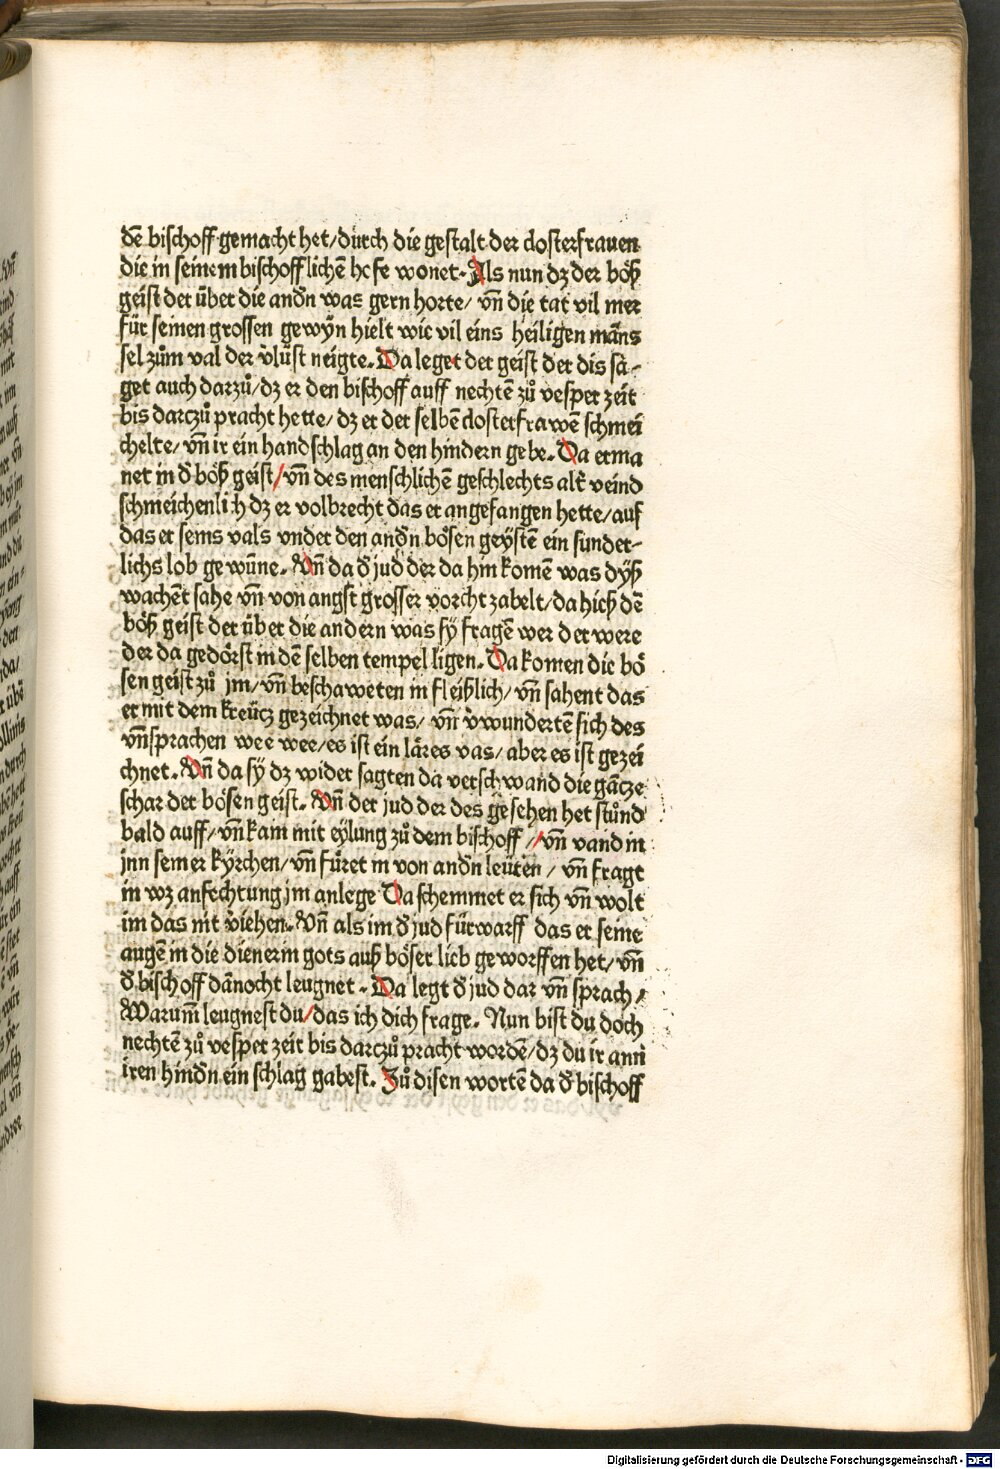 dē bischoff gemacht het/durch die gestalt der closterfrauen
die in seinem bischofflichē hofe wonet. Als nun dz der bȯß
geist der ůber die andn was gern horte/ vn̄ die tat vil mer
für seinen grossen gewÿn hielt wie vil eins heiligen mān̄s
sel zům val der vlůst neigte. Da leget der geist der dis sa-
get auch darzů/ dz er den bischoff auff nechtē zů vesper zeit
bis darczů pracht hette/ dz er der selbē closterfrawē schmei
chelte/ vn̄ ir ein handschlag an den hindern gebe. Da erma
net in d bȯß geist/ vn̄ des menschlichē geschlechts alt̄ veind
schmeichenlich dz er volbrecht das er angefangen hette/ auf
das er seins vals vnder den andn bȯsen geÿstē ein sunder-
lichs lob gewūne. Vn̄ da d jud der da hin komē was dÿß
wachēt sahe vn̄ von angst grosser vorcht zabelt/ da hieß dē
bȯß geist der ůber die andern was sÿ fragē wer der were
der da gedȯrst in dē selben tempel ligen. Da komen die bȯ
sen geist zů jm/ vn̄ beschaweten in fleißlich/ vn̄ sahent das
er mit dem kreůcz gezeichnet was/ vn̄ vwundertē sich des
vn̄ sprachen wee wee/ es ist ein lares vas/ aber es ist gezei
chnet. Vn̄ da sÿ dz wider sagten da verschwand die gācze
schar der bȯsen geist. Vn̄ der jud der des gesehen het stůnd
bald auff/ vn̄ kam mit eÿlung zů dem bischoff// vn̄ vand in
jnn seiner kÿrchen/ vn̄ fůret in von andn leůten / vn̄ fragt
in wz anfechtung jm anlege Da schemmet er sich vn̄ wolt
im das nit viehen. Vn̄ als im d jud fürwarff das er seine
augē in die dienerin gots auß bȯser lieb geworffen het/ vn̄
d bischoff dānocht leugnet. Da legt d jud dar vn̄ sprach/
Warum̄ leugnest du/ das ich dich frage. Nun bist du doch
nechtē zů vesper zeit bis darczů pracht wordē/ dz du ir ann
iren hindn ein schlag gabest. Zů disen wortē da d bischoff
Digitalisierung gefördert durch die Deutsche Forschungsgemeinschaft - DFG